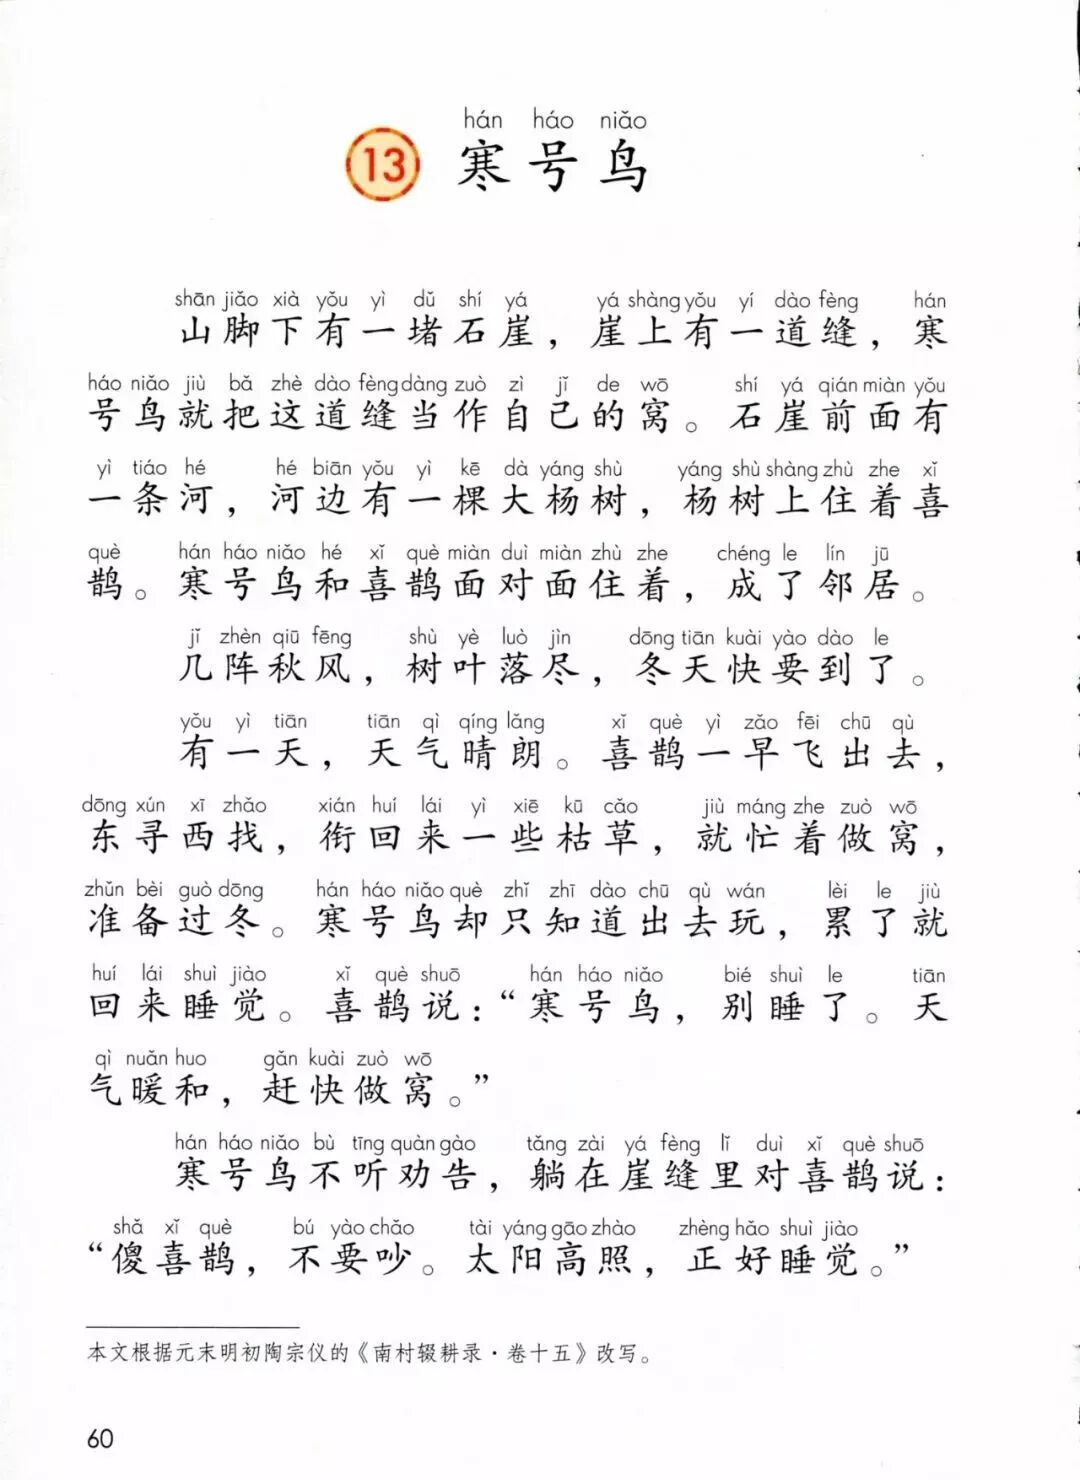 hán háo niǎo
13 寒号鸟
shān jiǎo xià yǒu yì dǔ shí yá yá shàng yǒu yí dào fèng hán
山脚下有一堵石崖，崖上有一道缝，寒
háo niǎo jiù bǎ zhè dào fèng dàng zuò zì jǐ de wō shí yá qián miàn yǒu
号鸟就把这道缝当作自己的窝。石崖前面有
yì tiáo hé hé biān yǒu yì kē dà yáng shù yáng shù shàng zhù zhe xǐ
一条河，河边有一棵大杨树，杨树上住着喜
què hán háo niǎo hé xǐ què miàn duì miàn zhù zhe chéng le lín jū
鹊。寒号鸟和喜鹊面对面住着，成了邻居。
jǐ zhèn qiū fēng shù yè luò jìn dōng tiān kuài yào dào le
几阵秋风，树叶落尽，冬天快要到了。
yǒu yì tiān tiān qì qíng lǎng xǐ què yì zǎo fēi chū qù
有一天，天气晴朗。喜鹊一早飞出去，
dōng xún xī zhǎo xián huí lái yì xiē kū cǎo jiù máng zhe zuò wō
东寻西找，衔回来一些枯草，就忙着做窝，
zhǔn bèi guò dōng hán háo niǎo què zhǐ zhī dào chū qù wán lèi le jiù
准备过冬。寒号鸟却只知道出去玩，累了就
huí lái shuì jiào xǐ què shuō hán háo niǎo bié shuì le tiān
回来睡觉。喜鹊说：“寒号鸟，别睡了。天
qì nuǎn huo gǎn kuài zuò wō
气暖和，赶快做窝。”
hán háo niǎo bù tīng quàn gào tǎng zài yá fèng lǐ duì xǐ què shuō
寒号鸟不听劝告，躺在崖缝里对喜鹊说：
shǎ xǐ què bú yào chǎo tài yáng gāo zhào zhèng hǎo shuì jiào
“傻喜鹊，不要吵。太阳高照，正好睡觉。”
本文根据元末明初陶宗仪的《南村辍耕录·卷十五》改写。
60